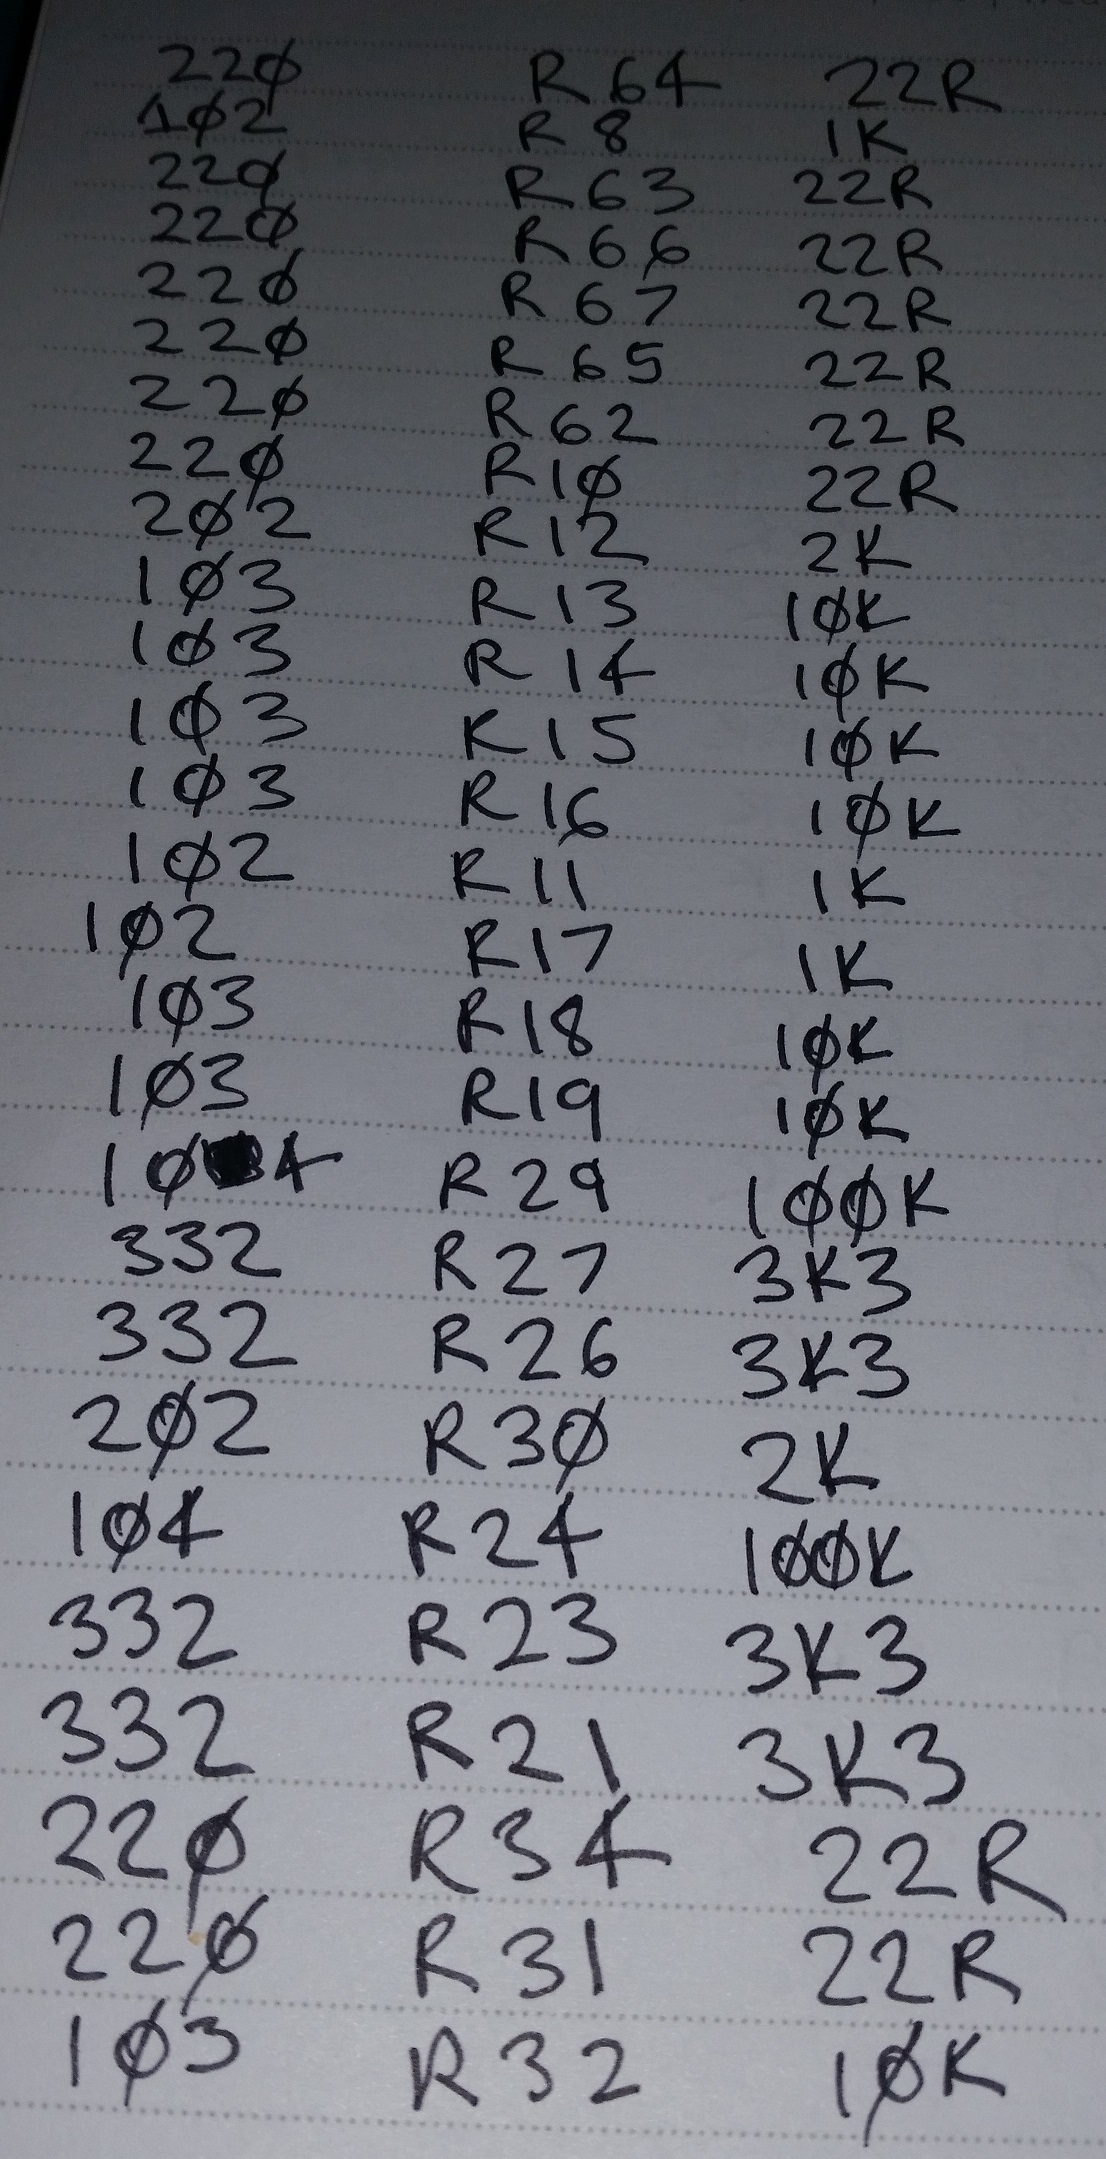 22Ø R 64 22R
1Ø2 R 8 1K
22Ø R 63 22R
22Ø R 66 22R
22Ø R 67 22R
22Ø R 65 22R
22Ø R 62 22R
22Ø R1Ø 22R
2Ø2 R12 2K
1Ø3 R13 1ØK
1Ø3 R 14 1ØK
1Ø3 R15 1ØK
1Ø3 R16 1ØK
1Ø2 R11 1K
1Ø2 R17 1K
1Ø3 R18 1ØK
1Ø3 R19 1ØK
1Ø4 R29 1ØØK
332 R27 3K3
332 R26 3K3
2Ø2 R3Ø 2K
1Ø4 R24 1ØØK
332 R23 3K3
332 R21 3K3
22Ø R34 22R
22Ø R31 22R
1Ø3 R32 1ØK